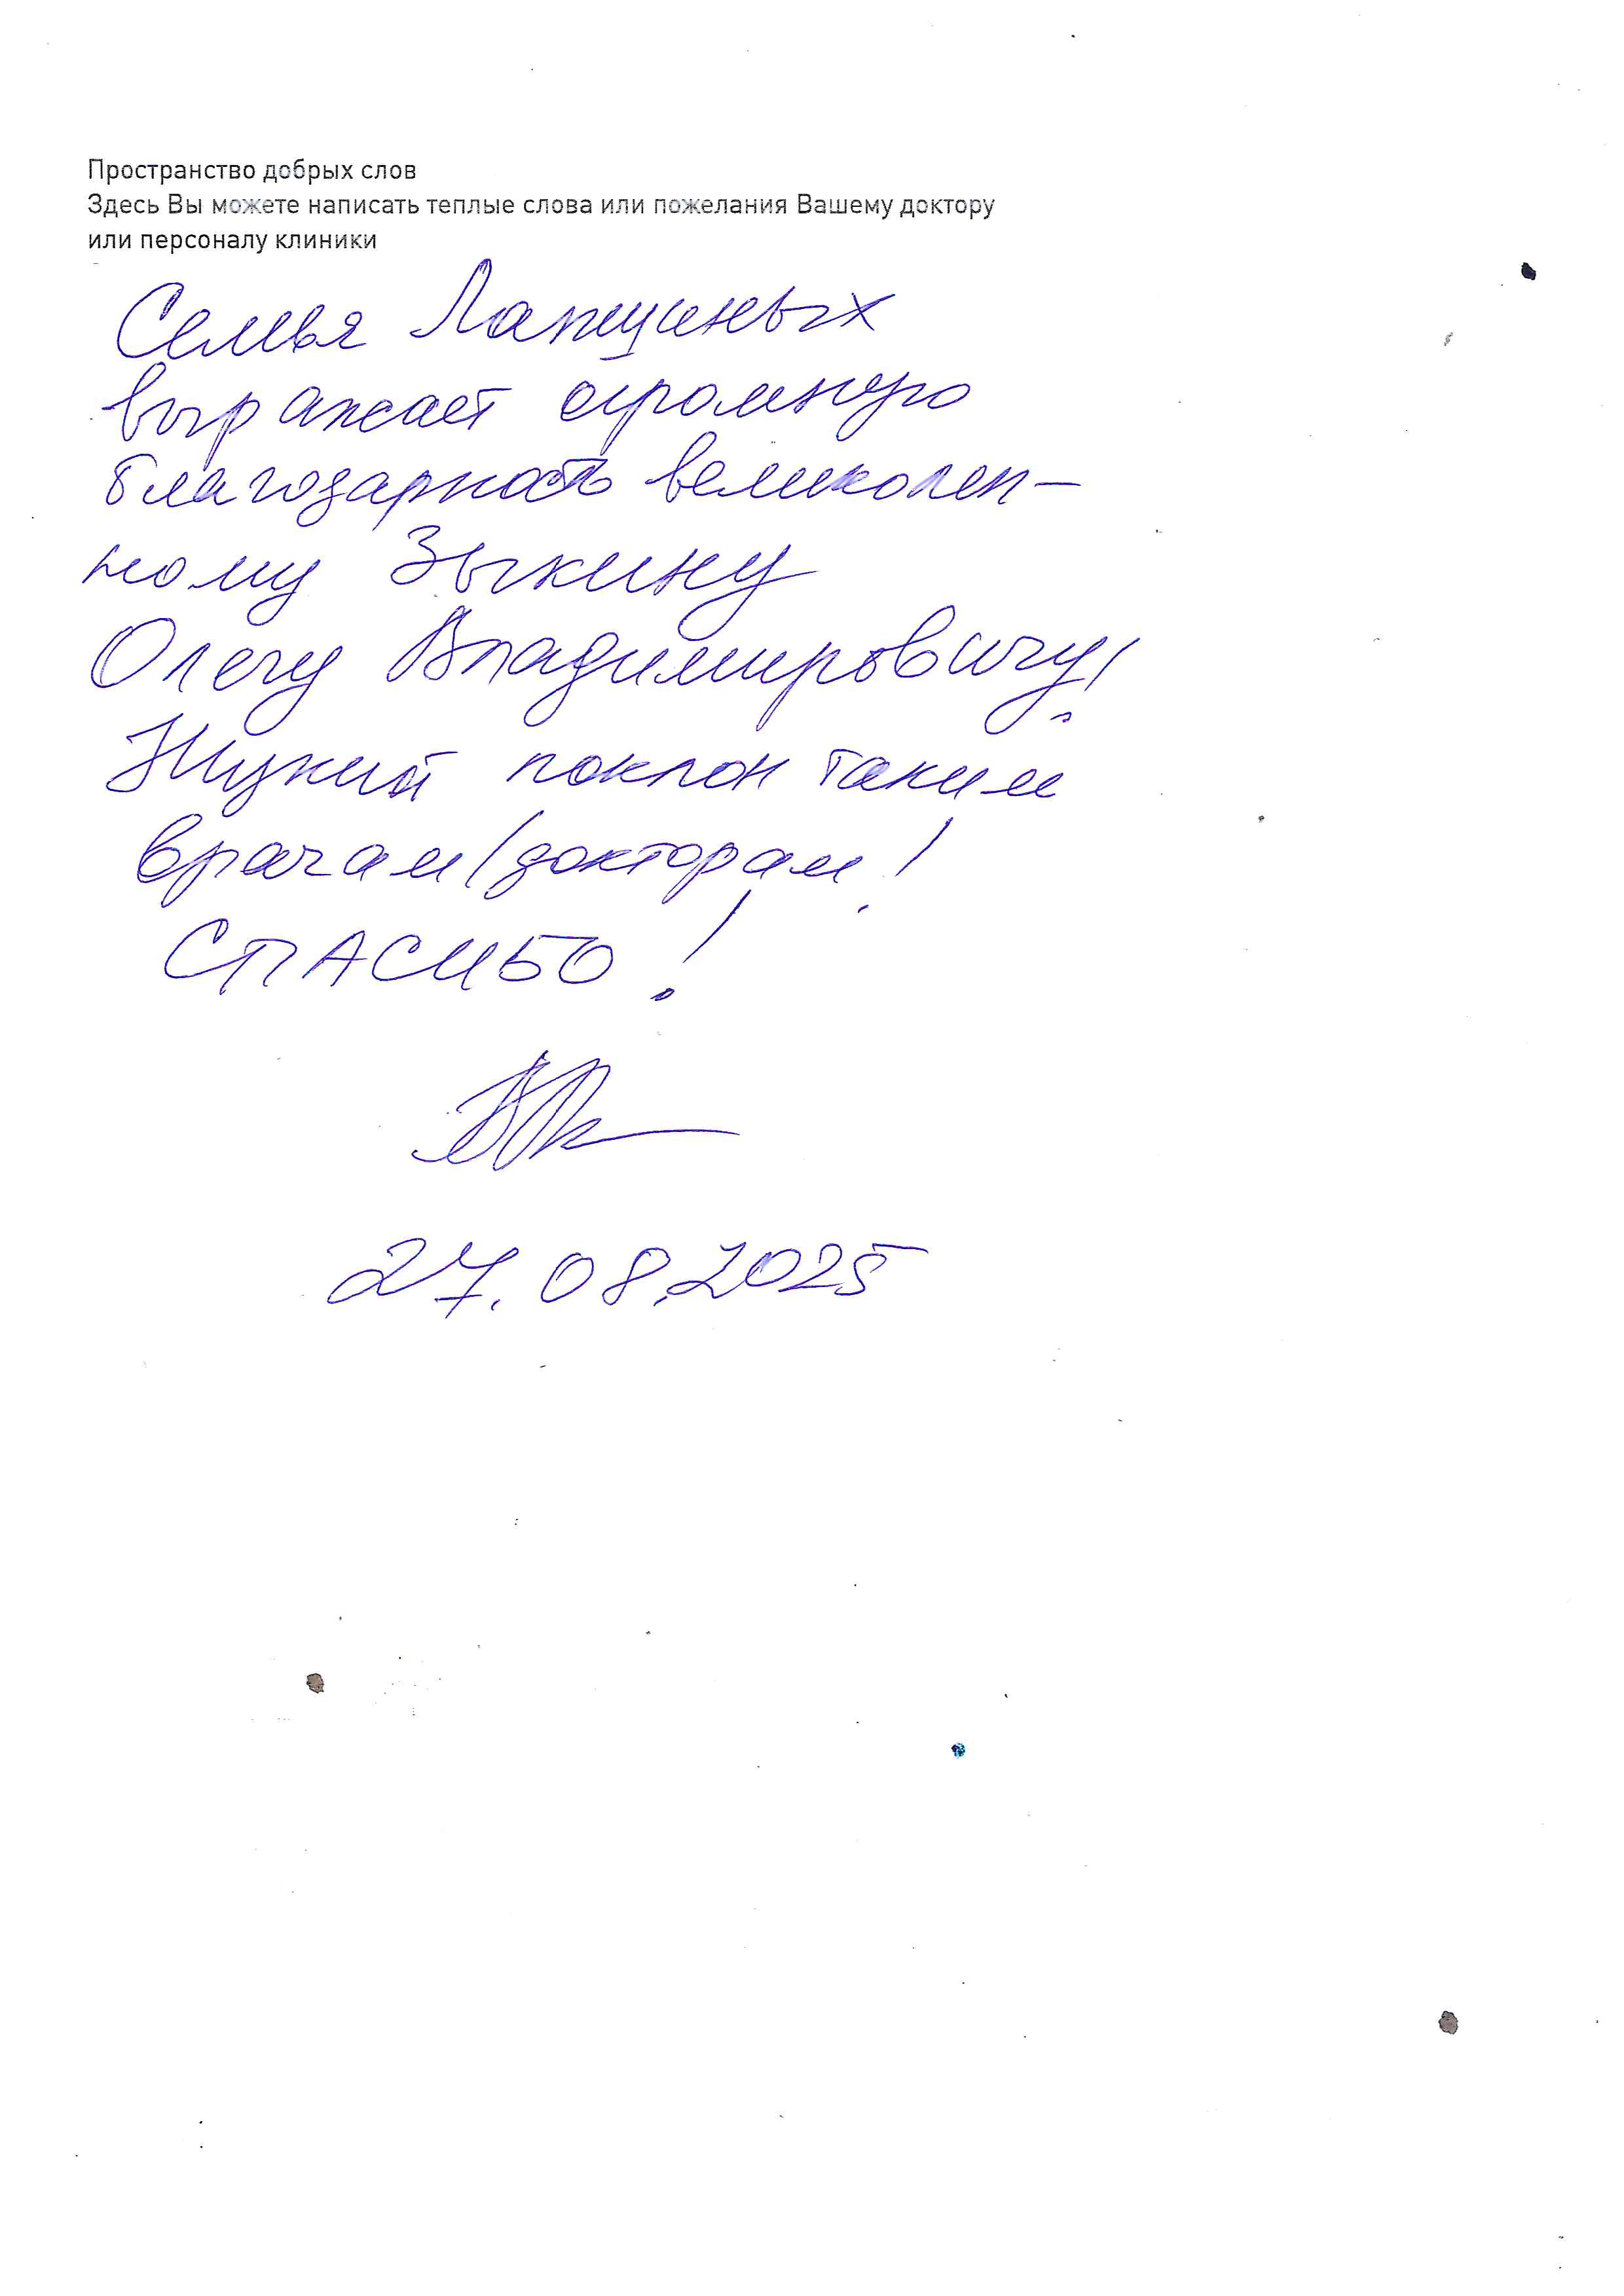 Пространство добрых слов
Здесь Вы можете написать теплые слова или пожелания Вашему доктору
или персоналу клиники
Семья
выражает огромную
благодарность великолеп-
ному Зыкину
Олегу Владимировичу!
Низкий поклон таким
врачам/докторам!
СПАСИБО!
27.08.2025